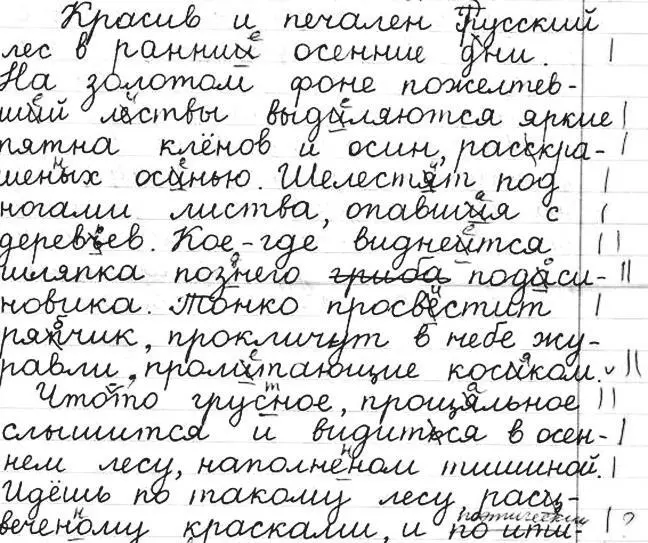 Красив и печален Русский
лес в ранний осенние дни.
На золотом фоне пожелтев-
ший листвы выдиляются яркие
пятна клёнов и осин, расскра-
шеных осинью. Шелестят под
ногами листва, опавшия с
деревьев. Кое-где виднеится
шляпка познего гриба подаси-
новика. Тонко просвестит
рянчик, прокличут в небе жу-
равли, пролитающие косиком.
Что то грусное, прощяльное
слышится и видиться в осен-
нем лесу, наполненом тишиной.
Идёшь по такому лесу, расц-
веченому красками, и поэтический